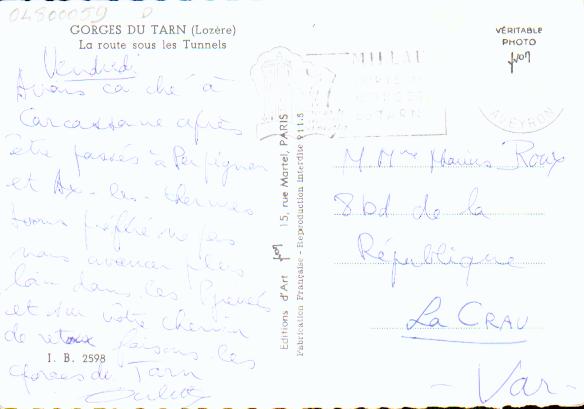 04500059 D
GORGES DU TARN (Lozère)
La route sous les Tunnels
Vendredi
Avons ca ché à
Carcassonne après
être passés à Perpignan
et Ax-les-thermes
avons préféré ne pas
nous avancer plus
loin dans les Pyrenées
et sur vôtre chemin
de retour faisons les
gorges du Tarn
I. B. 2598
Editions d'Art yvon 15, rue Martel, PARIS
Fabrication Française - Reproduction Interdite 9 11.5
MILLAU
DU TARN
AVEYRON
VÉRITABLE
PHOTO
yvon
M Mme Marius Roux
8 bd de la
République
La CRAU
- Var -